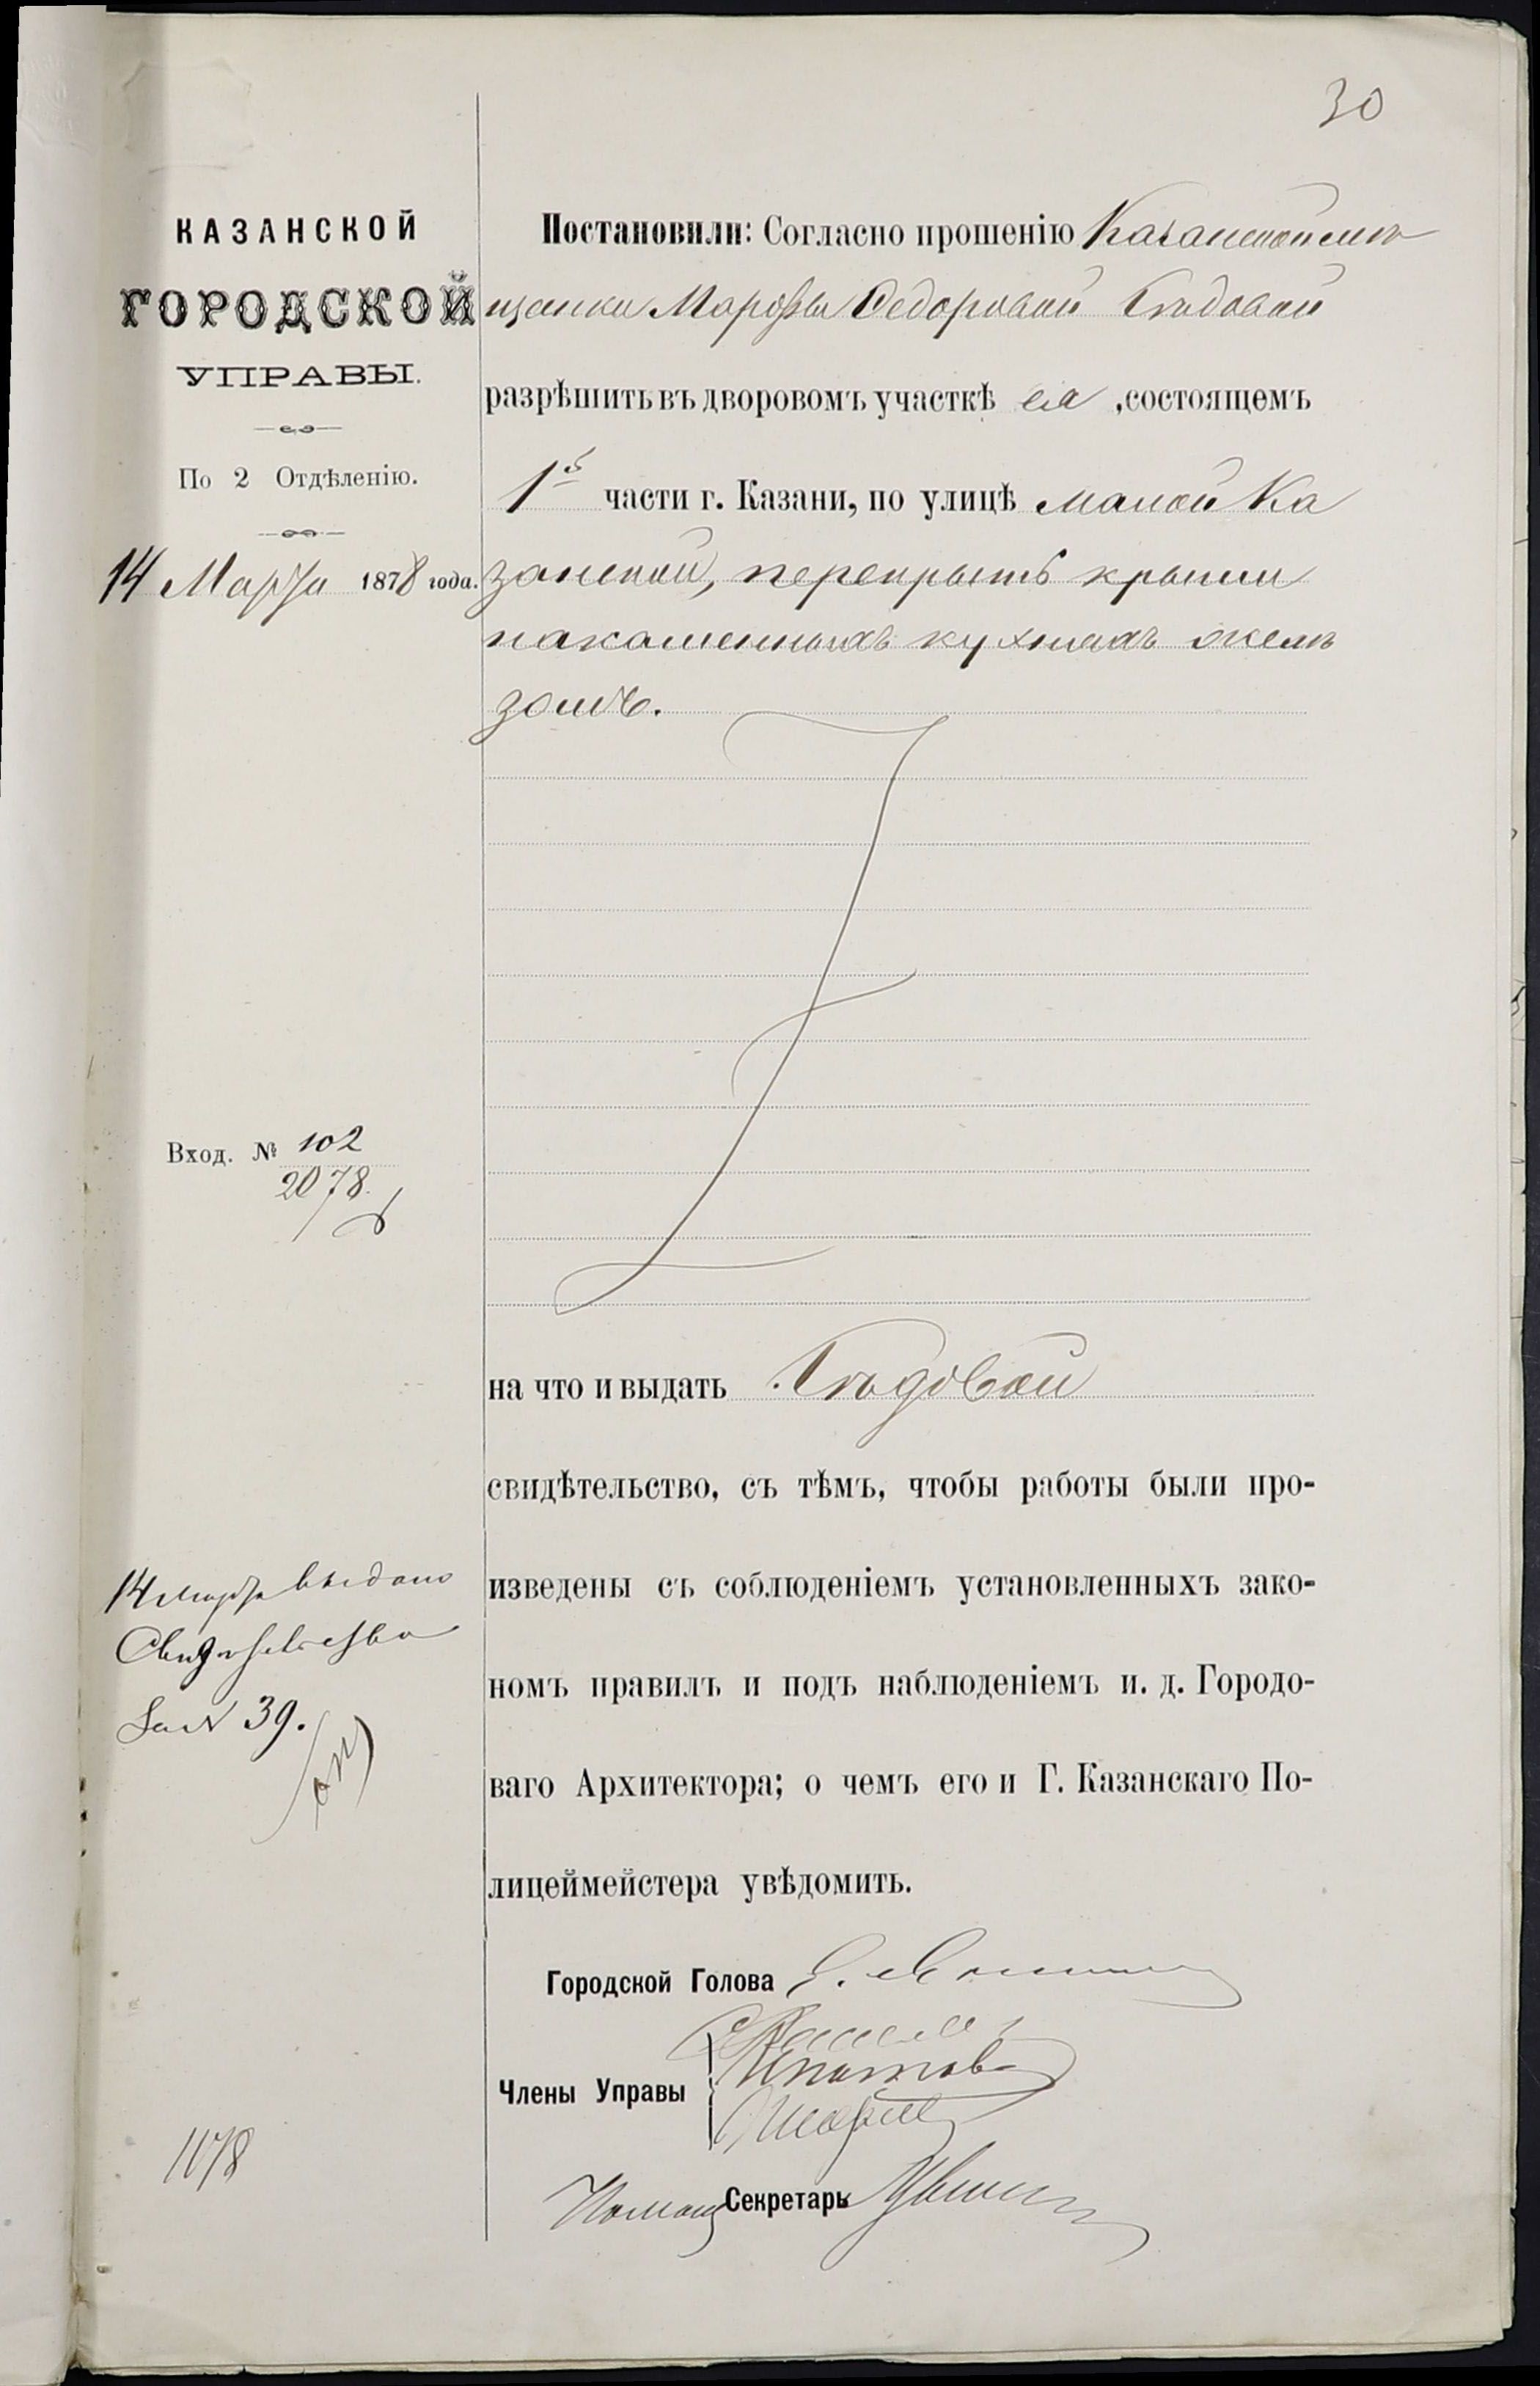 30
КАЗАНСКОЙ
ГОРОДСКОЙ
УПРАВЫ.
По 2 Отдѣленію.
14 Марта 1878 года.
Постановили: Согласно прошенію Казанской мѣ
щанки Марфы Федоровой Бѣдовой
разрѣшить въ дворовомъ участкѣ ея, состоящемъ
1й части г. Казани, по улицѣ малой Ка
занской, перекрыть крыши
на каменныхъ кухняхъ желѣ
зомъ.
Вход. № 102
2078.
на что и выдать Бѣдовой
свидѣтельство, съ тѣмъ, чтобы работы были про-
изведены съ соблюденіемъ установленныхъ зако-
номъ правилъ и подъ наблюденіемъ и. д. Городо-
ваго Архитектора; о чемъ его и Г. Казанскаго По-
лицеймейстера увѣдомить.
14 марта выдано
Свидѣтельство
За № 39.
Городской Голова
Члены Управы
Ипатов
Помощ Секретарь
1078